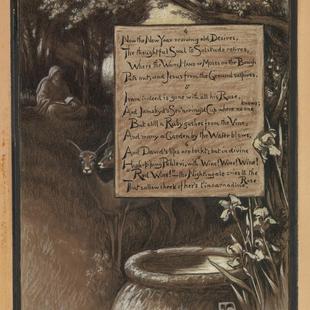 4
Now the New Year reviving old Desires,
The thoughtful Soul to Solitude retires,
Where the White Hand of Moses on the Bough
Puts out, and Jesus from the Ground suspires.
5
Iram indeed is gone with all his Rose,
And Jamshyd's Sev'n-ring'd Cup where no one knows;
But still a Ruby gushes from the Vine,
And many a Garden by the Water blows.
6
And David's lips are lockt; but in divine
High-piping Pehlevi, with "Wine! Wine! Wine!
Red Wine!"—the Nightingale cries to the Rose
That sallow cheek of her's t'incarnadine.